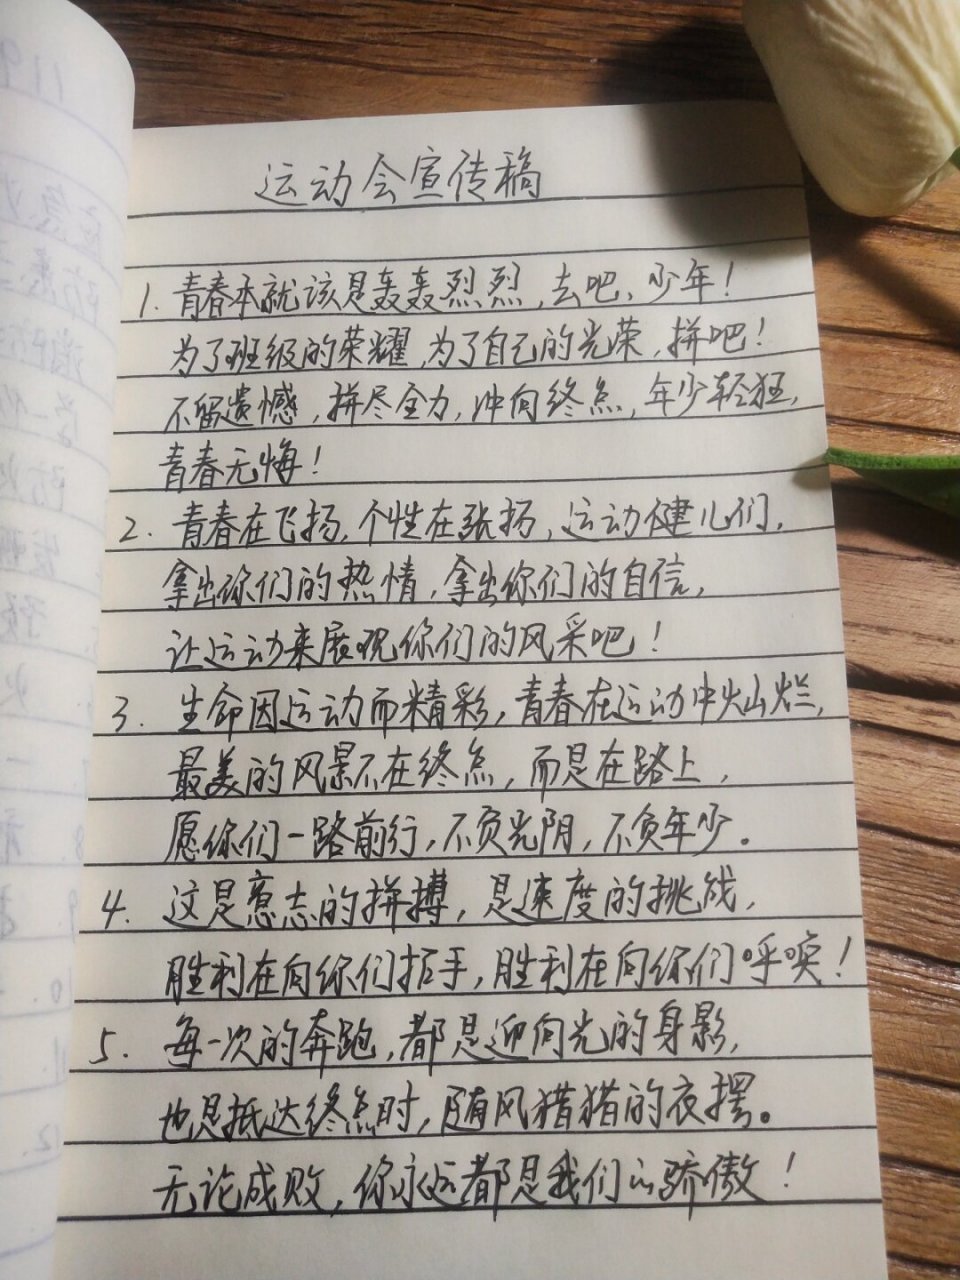 运动会宣传稿
1. 青春本就该是轰轰烈烈,去吧、少年!
为了班级的荣耀,为了自己的光荣,拼吧!
不留遗憾,拼尽全力,冲向终点,年少轻狂,
青春无悔!
2. 青春在飞扬,个性在张扬,运动健儿们,
拿出你们的热情,拿出你们的自信,
让运动来展现你们的风采吧!
3. 生命因运动而精彩,青春在运动中灿烂,
最美的风景不在终点,而是在路上,
愿你们一路前行,不负光阴,不负年少。
4. 这是意志的拼搏,是速度的挑战,
胜利在向你们招手,胜利在向你们呼唤!
5. 每一次的奔跑,都是迎向光的身影,
也是抵达终点时,随风猎猎的衣摆。
无论成败,你永远都是我们的骄傲!
8.
9.
10.
11.
12.